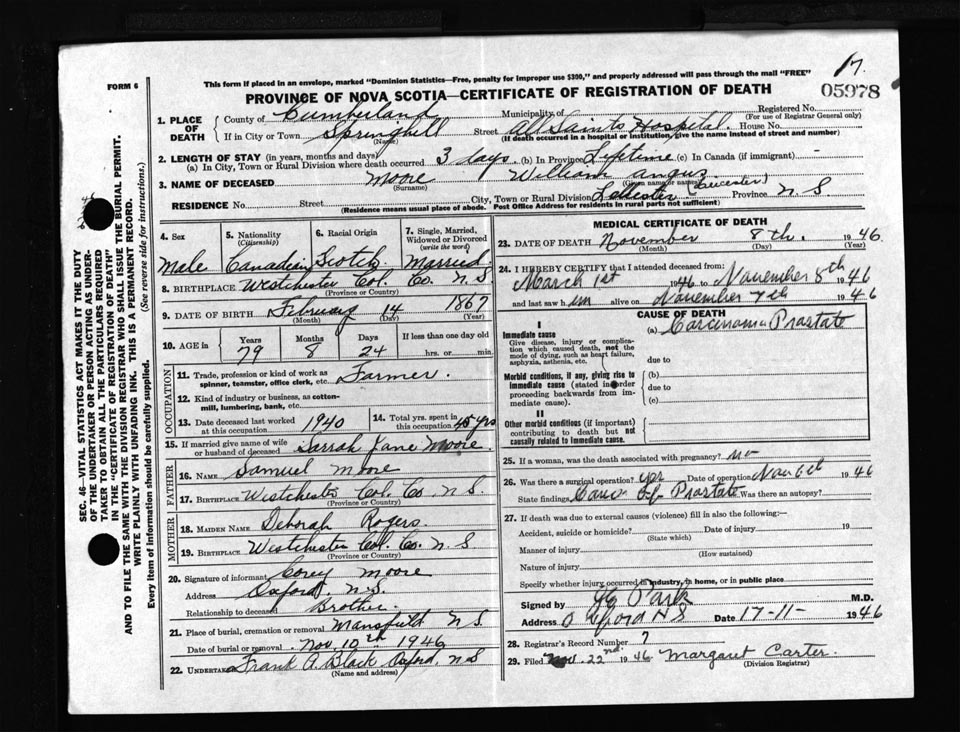 17.
FORM 6
This form if placed in an envelope, marked "Dominion Statistics—Free, penalty for improper use $300," and properly addressed will pass through the mail "FREE"
05978
PROVINCE OF NOVA SCOTIA—CERTIFICATE OF REGISTRATION OF DEATH
1. PLACE OF DEATH
County of Cumberland Municipality of Registered No.
(For use of Registrar General only)
If in City or Town Springhill Street All Saints Hospital. House No.
(Name) (If death occurred in a hospital or institution, give the name instead of street and number)
2. LENGTH OF STAY (in years, months and days)
(a) In City, Town or Rural Division where death occurred 3 days. (b) In Province Lifetime (c) In Canada (if immigrant) -
3. NAME OF DECEASED Moore William Angus
(Surname) (Given name or names)
RESIDENCE No. Street City, Town or Rural Division (Leicester) Province N S
(Residence means usual place of abode. Post Office Address for residents in rural parts not sufficient)
4. Sex
Male
5. Nationality
(Citizenship)
Canadian
6. Racial Origin
Scotch
7. Single, Married, Widowed or Divorced
(write the word)
Married
8. BIRTHPLACE Westchester Col. Co. N S
(Province or Country)
9. DATE OF BIRTH February 14 1867
(Month) (Day) (Year)
10. AGE in
Years Months Days If less than one day old
79 8 24 hrs. or min.
OCCUPATION
11. Trade, profession or kind of work as spinner, teamster, office clerk, etc. Farmer.
12. Kind of industry or business, as cotton-mill, lumbering, bank, etc.
13. Date deceased last worked at this occupation 1940
14. Total yrs. spent in this occupation 45 yrs
15. If married give name of wife or husband of deceased Sarrah Jane Moore.
FATHER
16. NAME Samuel Moore
17. BIRTHPLACE Westchester Col. Co. N S.
(Province or Country)
MOTHER
18. MAIDEN NAME Deborah Rogers.
19. BIRTHPLACE Westchester Col. Co. N S
(Province or Country)
20. Signature of informant Corey Moore
Address Oxford N.S.
Relationship to deceased Brother.
21. Place of burial, cremation or removal Mansfield N S.
Date of burial or removal Nov. 10th 1946
22. UNDERTAKER Frank A. Black Oxford, N S
(Name and address)
MEDICAL CERTIFICATE OF DEATH
23. DATE OF DEATH November 8th. 1946
(Month) (Day) (Year)
24. I HEREBY CERTIFY that I attended deceased from:
March 1st 1946 to November 8th 1946
and last saw him alive on November 7th 1946
CAUSE OF DEATH
I
Immediate cause
Give disease, injury or complication which caused death, not the mode of dying, such as heart failure, asphyxia, asthenia, etc.
(a) Carcinoma Prostate
due to
Morbid conditions, if any, giving rise to immediate cause (stated in order proceeding backwards from immediate cause).
(b)
due to
(c)
II
Other morbid conditions (if important) contributing to death but not causally related to immediate cause.
25. If a woman, was the death associated with pregnancy? no
26. Was there a surgical operation? yes Date of operation Nov 6th 1946
State findings Prostate Was there an autopsy?
27. If death was due to external causes (violence) fill in also the following:—
Accident, suicide or homicide? Date of injury 19
(State which)
Manner of injury
(How sustained)
Nature of injury
Specify whether injury occurred in industry, in home, or in public place
Signed by Park M.D.
Address Oxford N S Date 17-11- 1946
28. Registrar's Record Number 7
29. Filed Nov. 22nd. 1946. Margaret Carter.
(Division Registrar)
SEC. 46—VITAL STATISTICS ACT MAKES IT THE DUTY
OF THE UNDERTAKER OR PERSON ACTING AS UNDER-
TAKER TO OBTAIN ALL THE PARTICULARS REQUIRED
IN THE "CERTIFICATE OF REGISTRATION OF DEATH"
AND TO FILE THE SAME WITH THE DIVISION REGISTRAR WHO SHALL ISSUE THE BURIAL PERMIT.
WRITE PLAINLY WITH UNFADING INK. THIS IS A PERMANENT RECORD.
Every item of Information should be carefully supplied. (See reverse side for instructions.)